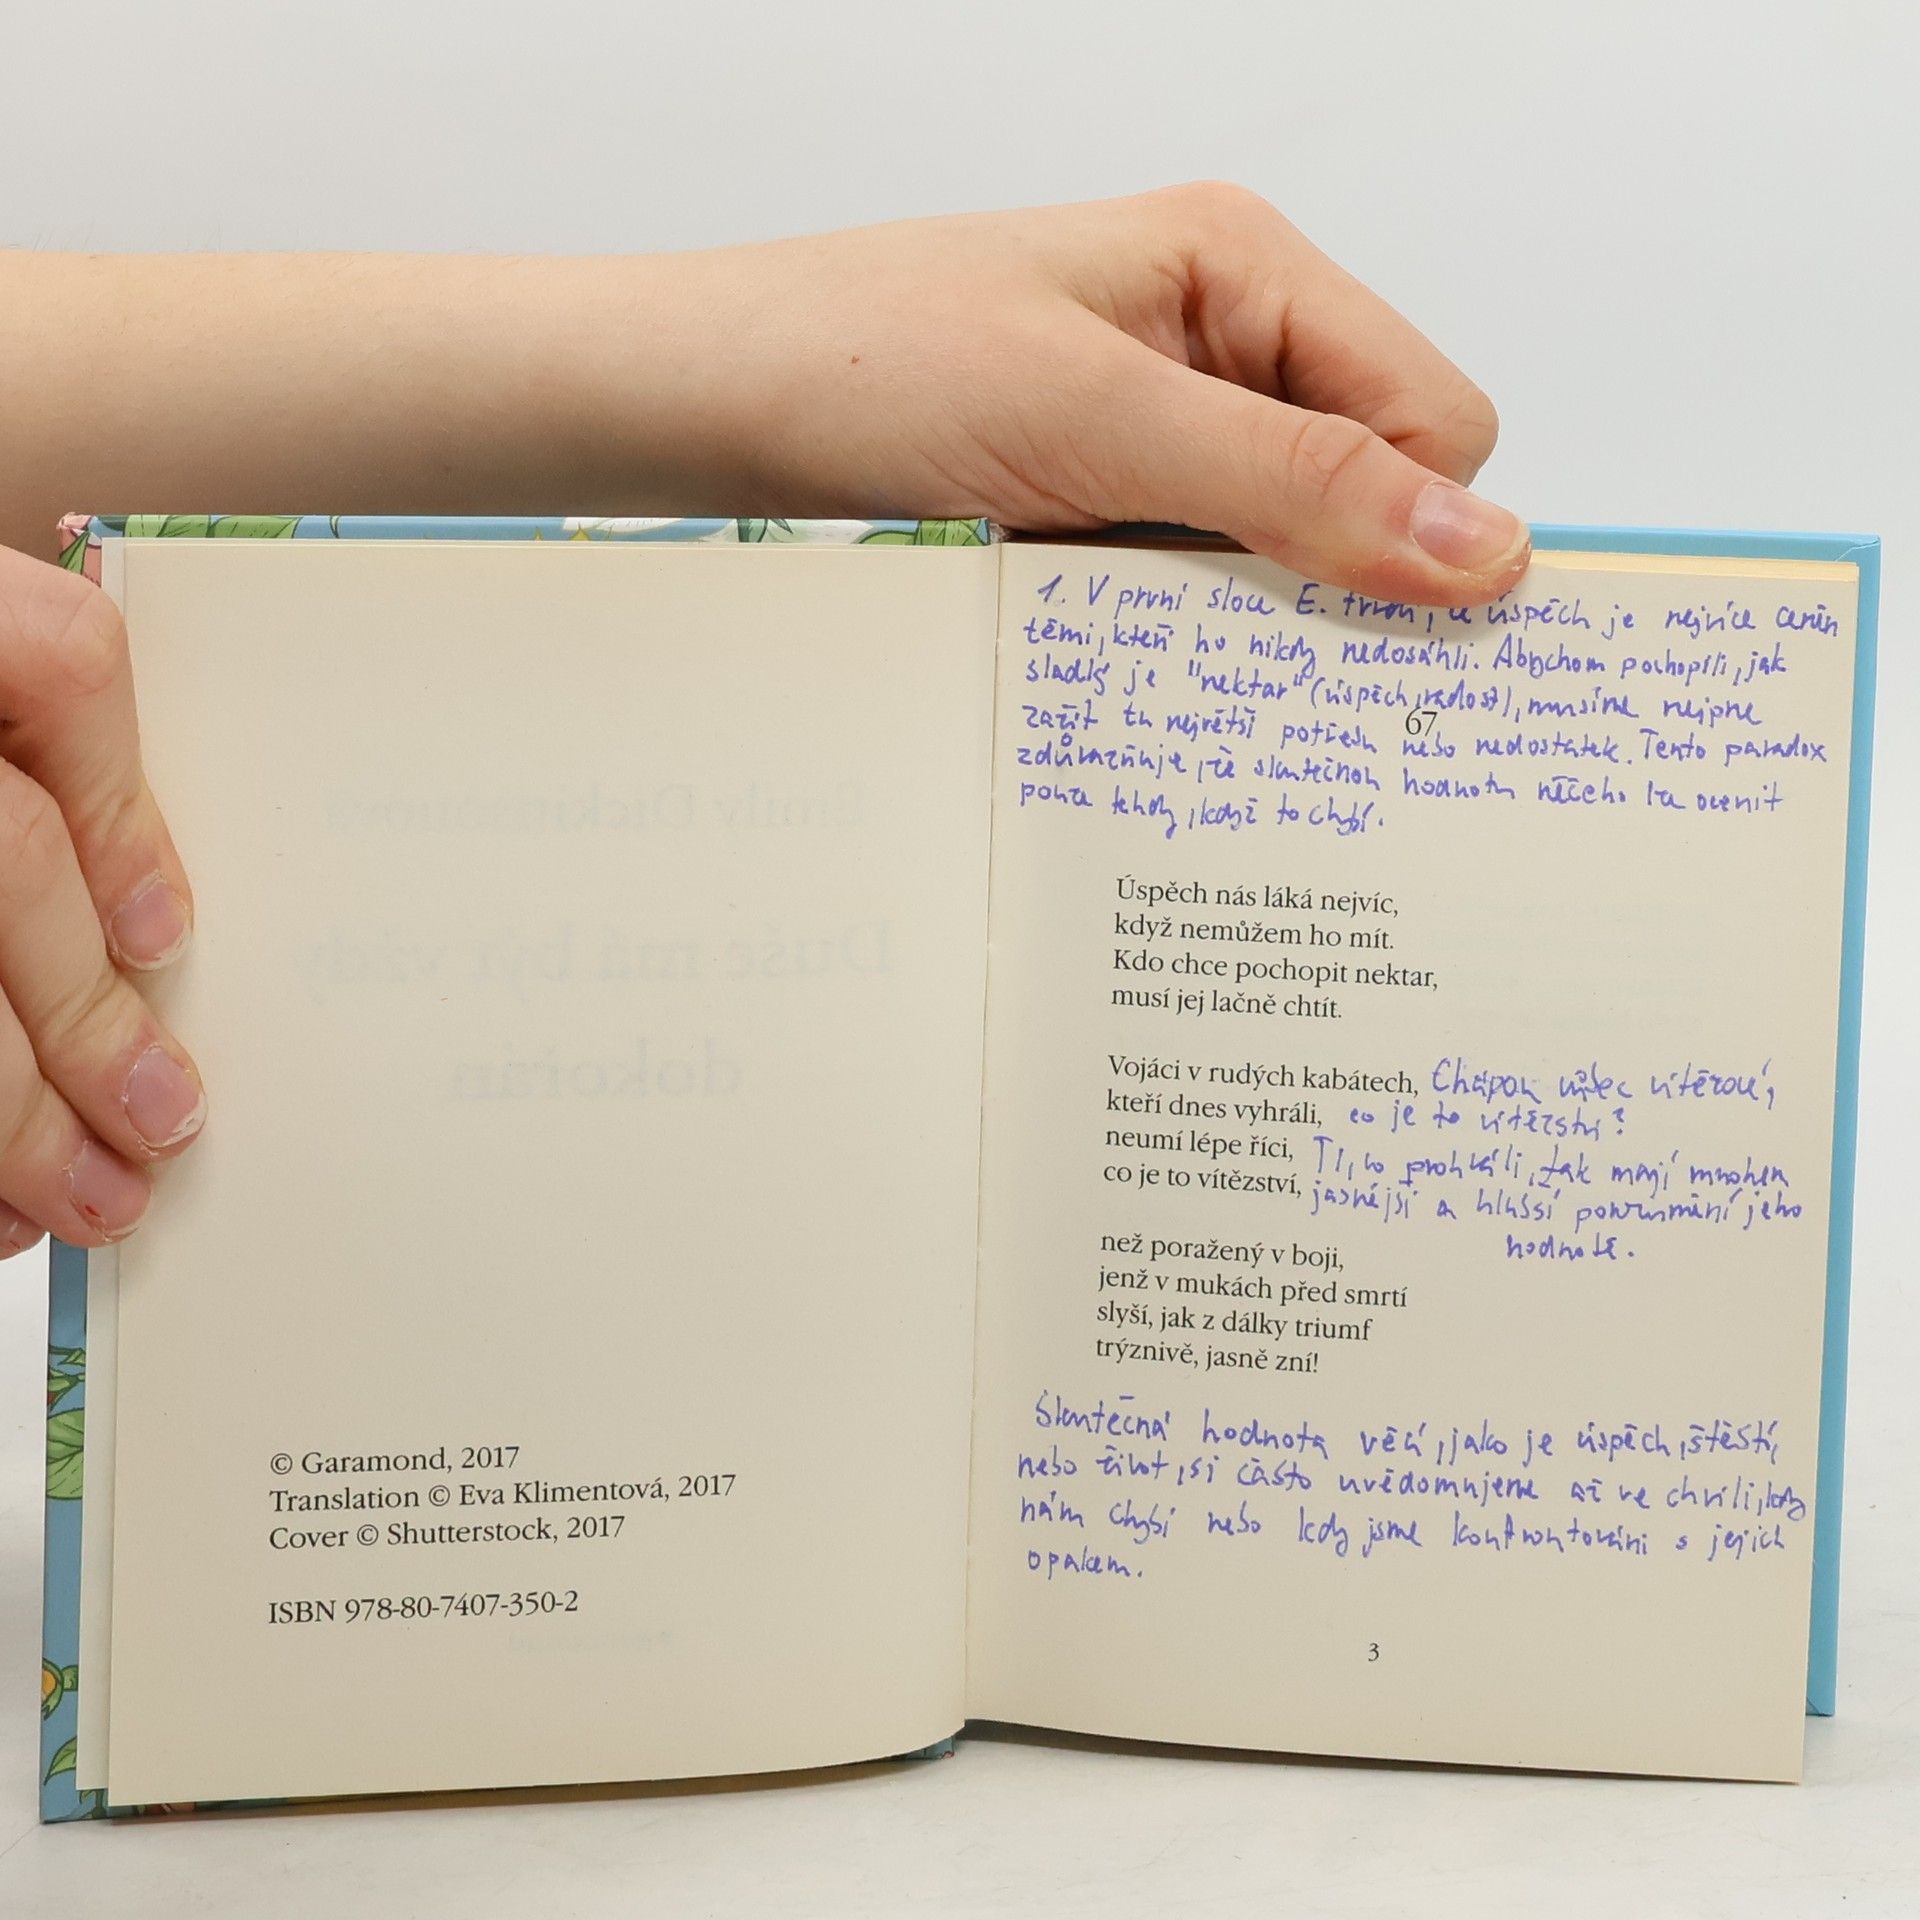 © Garamond, 2017
Translation © Eva Klimentová, 2017
Cover © Shutterstock, 2017
ISBN 978-80-7407-350-2
1. V první sloce E. tvrdí, že úspěch je nejvíce ceněn
těmi, kteří ho nikdy nedosáhli. Abychom pochopili, jak
sladký je "nektar" (úspěch, radost), musíme nejprve
67
zažít tu největší potřebu nebo nedostatek. Tento paradox
zdůrazňuje, že skutečnou hodnotu něčeho lze ocenit
pouze tehdy, když to chybí.
Úspěch nás láká nejvíc,
když nemůžem ho mít.
Kdo chce pochopit nektar,
musí jej lačně chtít.
Vojáci v rudých kabátech, Chápou vůbec vítězové,
kteří dnes vyhráli, co je to vítězství?
neumí lépe říci, Ti, co prohráli, tak mají mnohem
co je to vítězství, jasnější a hlubší porozumění jeho
hodnotě.
než poražený v boji,
jenž v mukách před smrtí
slyší, jak z dálky triumf
trýznivě, jasně zní!
Skutečná hodnota věcí, jako je úspěch, štěstí,
nebo život, si často uvědomujeme až ve chvíli, kdy
nám chybí nebo kdy jsme konfrontováni s jejich
opakem.
3